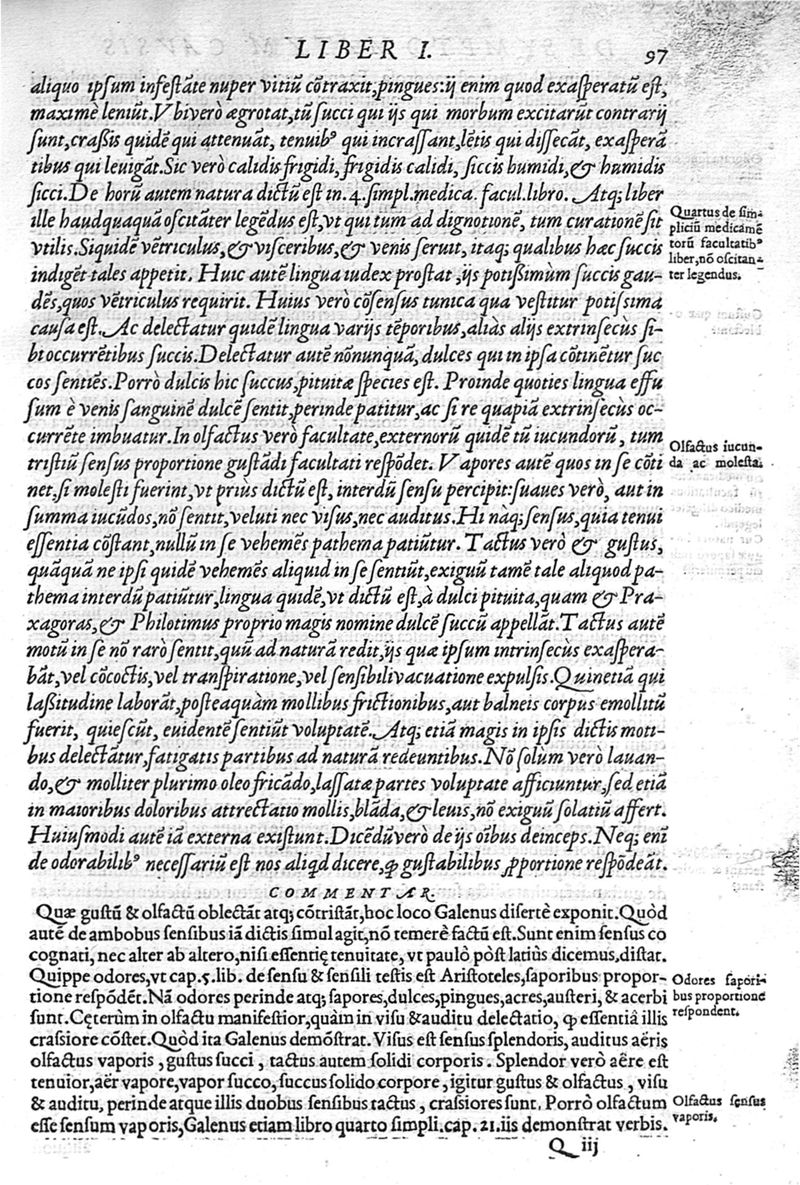 LIBER I. 97
aliquo ipsum infestãte nuper vitiũ cõtraxit, pingues: ij enim quod exasperatũ est,
maximè leniũt. Vbiverò ægrotat, tũ succi qui ijs qui morbum excitarũt contrarij
sunt, crassis quidẽ qui attenuãt, tenuibꝰ qui incrassant, lẽtis qui dissecãt, exasperã
tibus qui leuigãt. Sic verò calidis frigidi, frigidis calidi, siccis humidi, & humidis
sicci. De horũ autem natura dictũ est in. 4. simpl. medica. facul. libro. Atq; liber
ille haudquaquã oscitãter legẽdus est, vt qui tum ad dignotionẽ, tum curationẽ sit
vtilis. Siquidẽ vẽtriculus, & visceribus, & venis seruit, itaq; qualibus hæc succis
indigẽt tales appetit. Huic autẽ lingua iudex prostat, ijs potissimum succis gau-
dẽs, quos vẽtriculus requirit. Huius verò cõsensus tunica qua vestitur potissima
causa est. Ac delectatur quidẽ lingua varijs tẽporibus, aliàs alijs extrinsecùs si-
bi occurrẽtibus succis. Delectatur autẽ nõnunquã, dulces qui in ipsa cõtinẽtur suc
cos sentiẽs. Porrò dulcis hic succus, pituitæ species est. Proinde quoties lingua effu
sum è venis sanguinẽ dulcẽ sentit, perinde patitur, ac si re quapiã extrinsecùs oc-
currẽte imbuatur. In olfactus verò facultate, externorũ quidẽ tũ iucundorũ, tum
tristiũ sensus proportione gustãdi facultati respõdet. Vapores autẽ quos in se cõti
net, si molesti fuerint, vt priùs dictũ est, interdũ sensu percipit: suaues verò, aut in
summa iucũdos, nõ sentit, veluti nec visus, nec auditus. Hi nãq; sensus, quia tenui
essentia cõstant, nullũ in se vehemẽs pathema patiũtur. Tactus verò & gustus,
quãquã ne ipsi quidẽ vehemẽs aliquid in se sentiũt, exiguũ tamẽ tale aliquod pa-
thema interdũ patiũtur, lingua quidẽ, vt dictũ est, à dulci pituita, quam & Pra-
xagoras, & Philotimus proprio magis nomine dulcẽ succũ appellãt. Tactus autẽ
motũ in se nõ rarò sentit, quũ ad naturã redit, ijs quæ ipsum intrinsecùs exaspera-
bãt, vel cõcoctis, vel transpiratione, vel sensibili vacuatione expulsis. Quinetiã qui
lassitudine laborãt, posteaquàm mollibus frictionibus, aut balneis corpus emollitũ
fuerit, quiescũt, euidentẽ sentiũt voluptatẽ. Atq; etiã magis in ipsis dictis moti-
bus delectãtur, fatigatis partibus ad naturã redeuntibus. Nõ solùm verò lauan-
do, & molliter plurimo oleo fricãdo, lassatæ partes voluptate afficiuntur, sed etiã
in maioribus doloribus attrectatio mollis, blãda, & leuis, nõ exiguũ solatiũ affert.
Huiusmodi autẽ iã externa existunt. Dicẽdũ verò de ijs oĩbus deinceps. Neq; enĩ
de odorabilibꝰ necessariũ est nos aliqd dicere, ꝙ gustabilibus ꝓportione respõdeãt.
Quartus de sim-
pliciũ medicamẽ
torũ facultatibꝰ
liber, nõ oscitan-
ter legendus.
Olfactus iucun-
da ac molesta.
COMMENTAR.
Quæ gustũ & olfactũ oblectãt atq; cõtristãt, hoc loco Galenus disertè exponit. Quòd
autẽ de ambobus sensibus iã dictis simul agit, nõ temerè factũ est. Sunt enim sensus co
cognati, nec alter ab altero, nisi essentię tenuitate, vt paulò pòst latiùs dicemus, distat.
Quippe odores, vt cap. 5. lib. de sensu & sensili testis est Aristoteles, saporibus propor-
tione respõdẽt. Nã odores perinde atq; sapores, dulces, pingues, acres, austeri, & acerbi
sunt. Cęterùm in olfactu manifestior, quàm in visu & auditu delectatio, ꝙ essentiâ illis
crassiore cõstet. Quòd ita Galenus demõstrat. Visus est sensus splendoris, auditus aëris
olfactus vaporis, gustus succi, tactus autem solidi corporis. Splendor verò aëre est
tenuior, aër vapore, vapor succo, succus solido corpore, igitur gustus & olfactus, visu
& auditu, perinde atque illis duobus sensibus tactus, crassiores sunt. Porrò olfactum
esse sensum vaporis, Galenus etiam libro quarto simpli. cap. 21. iis demonstrat verbis.
Odores sapori-
bus proportione
respondent.
Olfactus sensus
vaporis.
Q iij